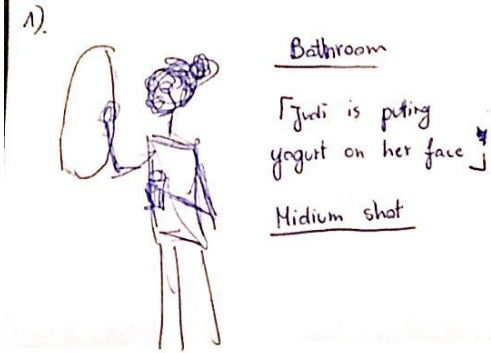 1).
Bathroom
「Judi is puting
yogurt on her face」
Midium shot